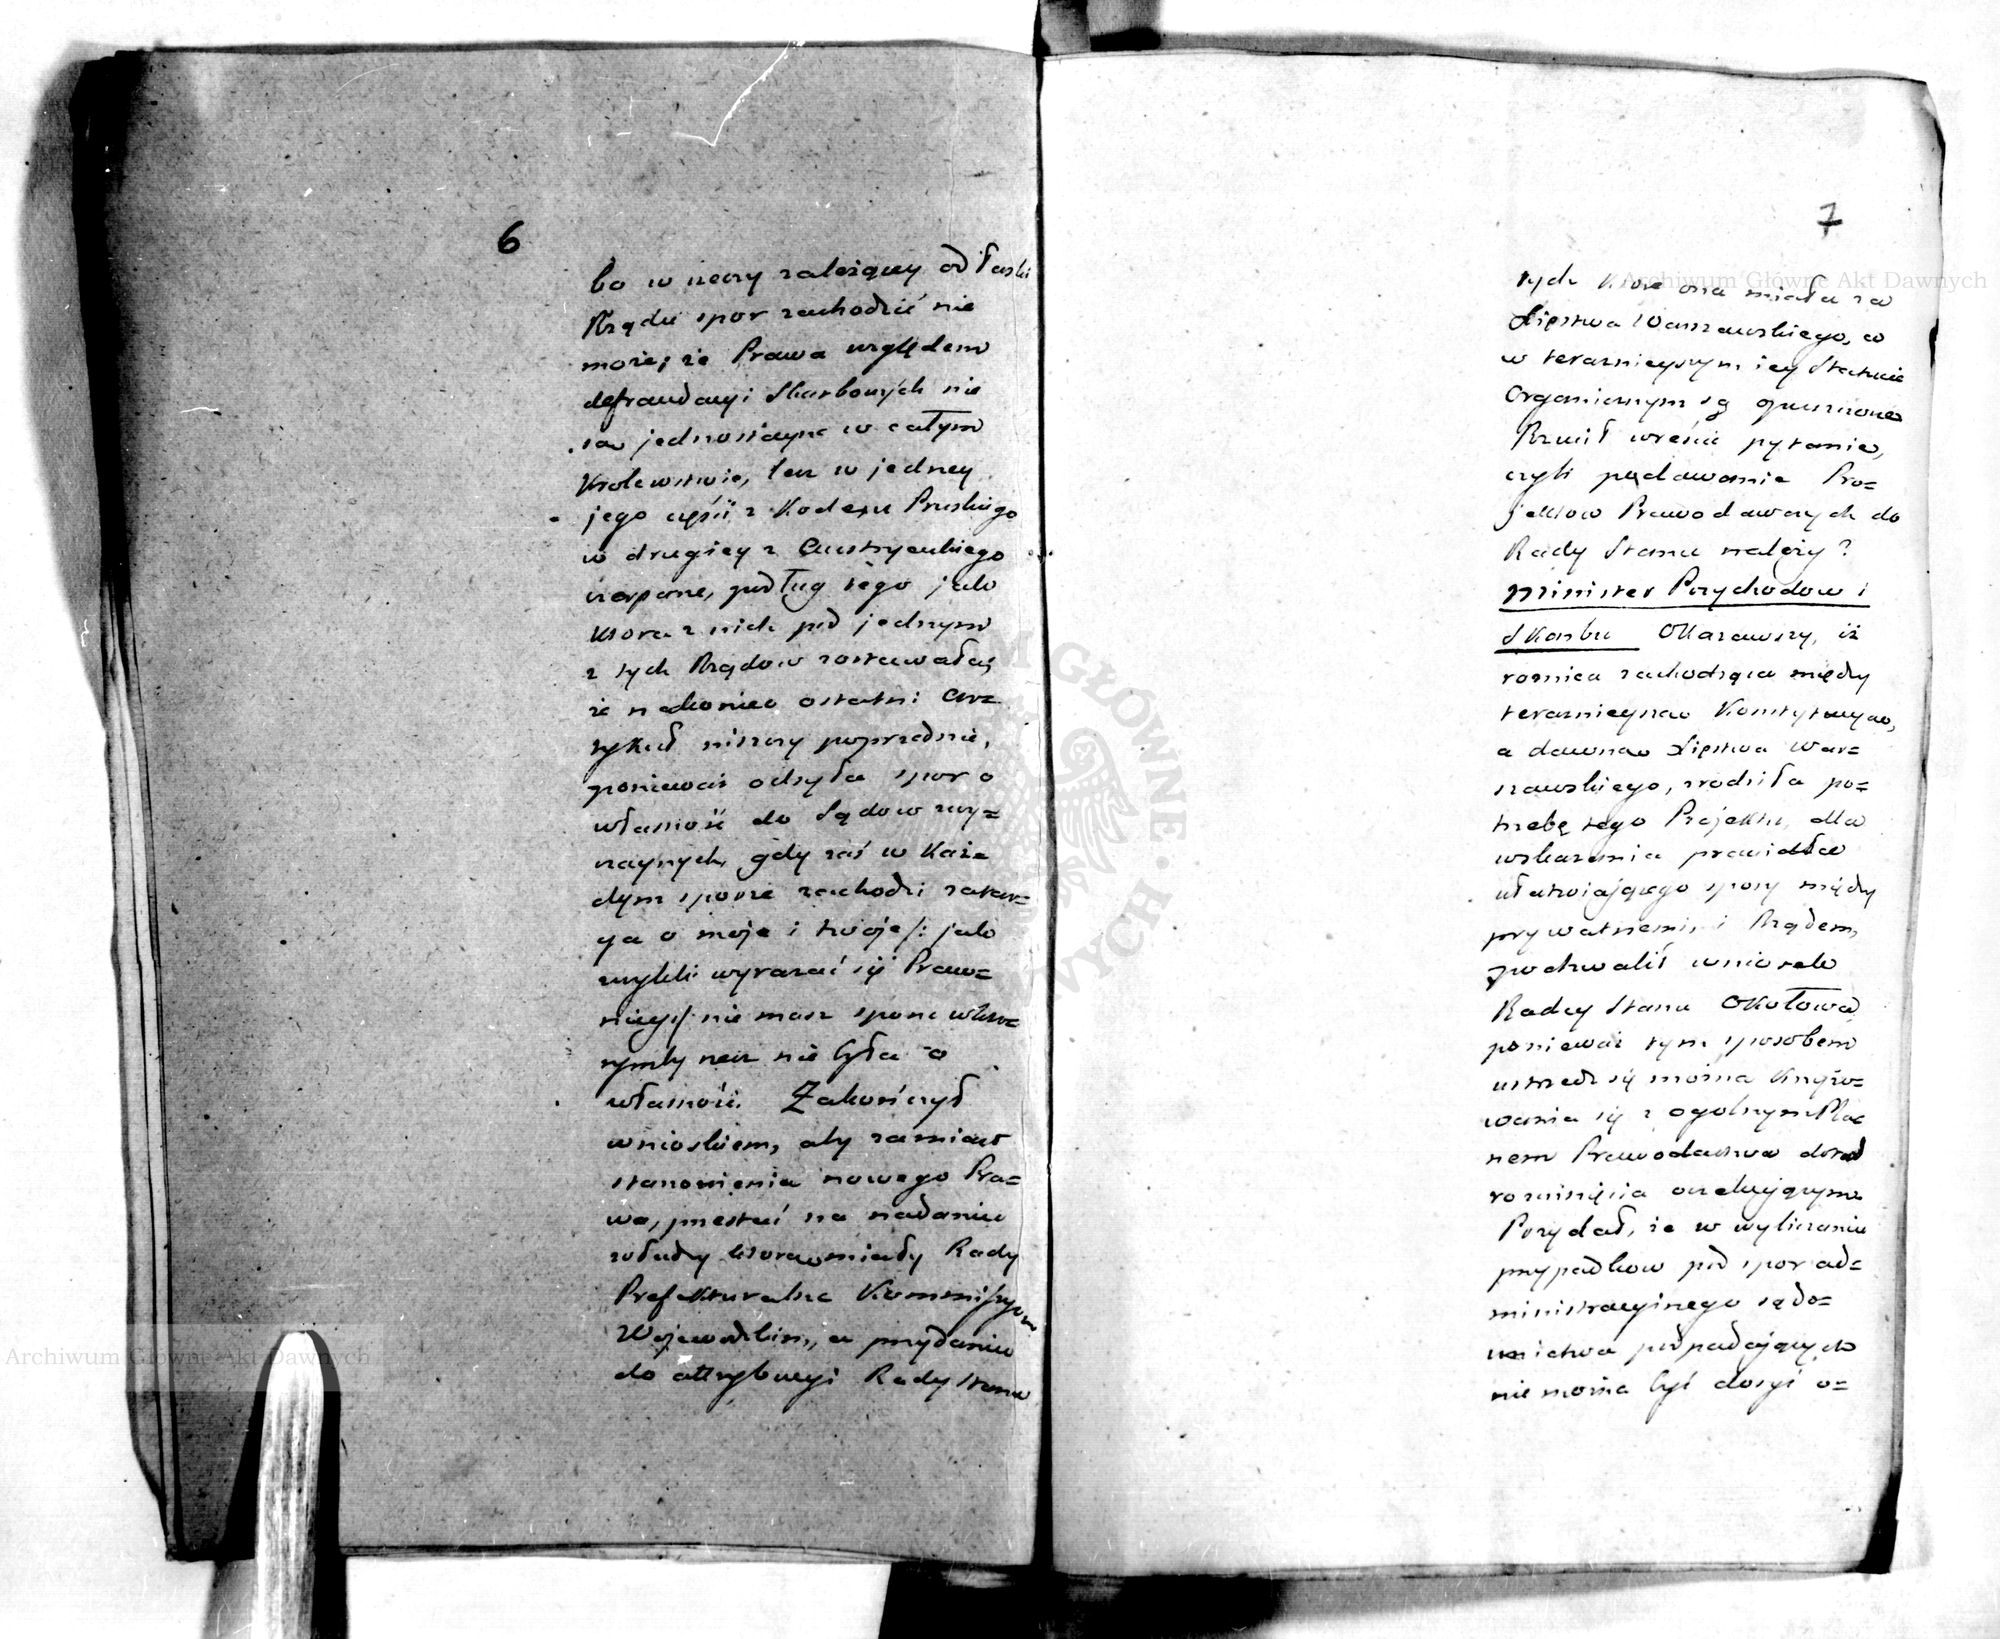 6
bo w rzeczy zależący od łaski
Rządu spor zachodzić nie
może; że Prawa względem
defraudacyi Skarbowych nie
są jednostayne w całym
Krolewstwie, lecz w jedney
jego części z Kodexu Pruskiego
w drugiey z Austryackiego
czerpane, podług tego jako
ktora z nich pod jednym
z tych Rządow zostawała;
że nakoniec ostatni Ar=
tykuł niszczy poprzednie,
ponieważ odsyła spor o
własność do Sądow zwy=
czaynych, gdy zaś w każ=
dym sporze zachodzi zatar=
ga o moje i twoje /: jako
zwykli wyrazać się Praw=
nicy :/ nie masz sporu w kto=
rymby rzecz nie była o
własność. Zakończył
wnioskiem, aby zamiast
stanowienia nowego Pra=
wa, przestać na nadaniu
władzy ktorą miały Rady
Prefekturalne Kommissyom
Wojewodzkim, a przydaniu
do attrybucyi Rady Stanu
7
tych ktore ona miała za
Xięstwa Warszawskiego, a
w teraznieyszym iey Statucie
Organicznym są opuszczone
Rzucił wreście pytanie,
czyli podawanie Pro=
jektow Prawodawczych do
Rady Stanu należy?
Minister Przychodow i
Skarbu Okazawszy, iż
roznica zachodząca między
teraznieyszą Konstytucyą,
a dawną Xięstwa War=
szawskiego, zrodziła po=
trzebę tego Projektu, dla
wskazania prawidła
ułatwiającego spory między
prywatnemi i Rządem,
pochwalił wniosek
Radcy Stanu Okołowa,
ponieważ tym sposobem
ustrzedz się można krzyżo=
wania się z ogolnym Pla=
nem Prawodawstwa dotąd
rozwinięcia oczekującym
Przydał, że w wyliczaniu
przypadkow pod spor ad=
ministracyinego sądo=
wnictwa podpadających
nie można być dosyć o=
Archiwum Główne Akt Dawnych
Archiwum Główne Akt Dawnych